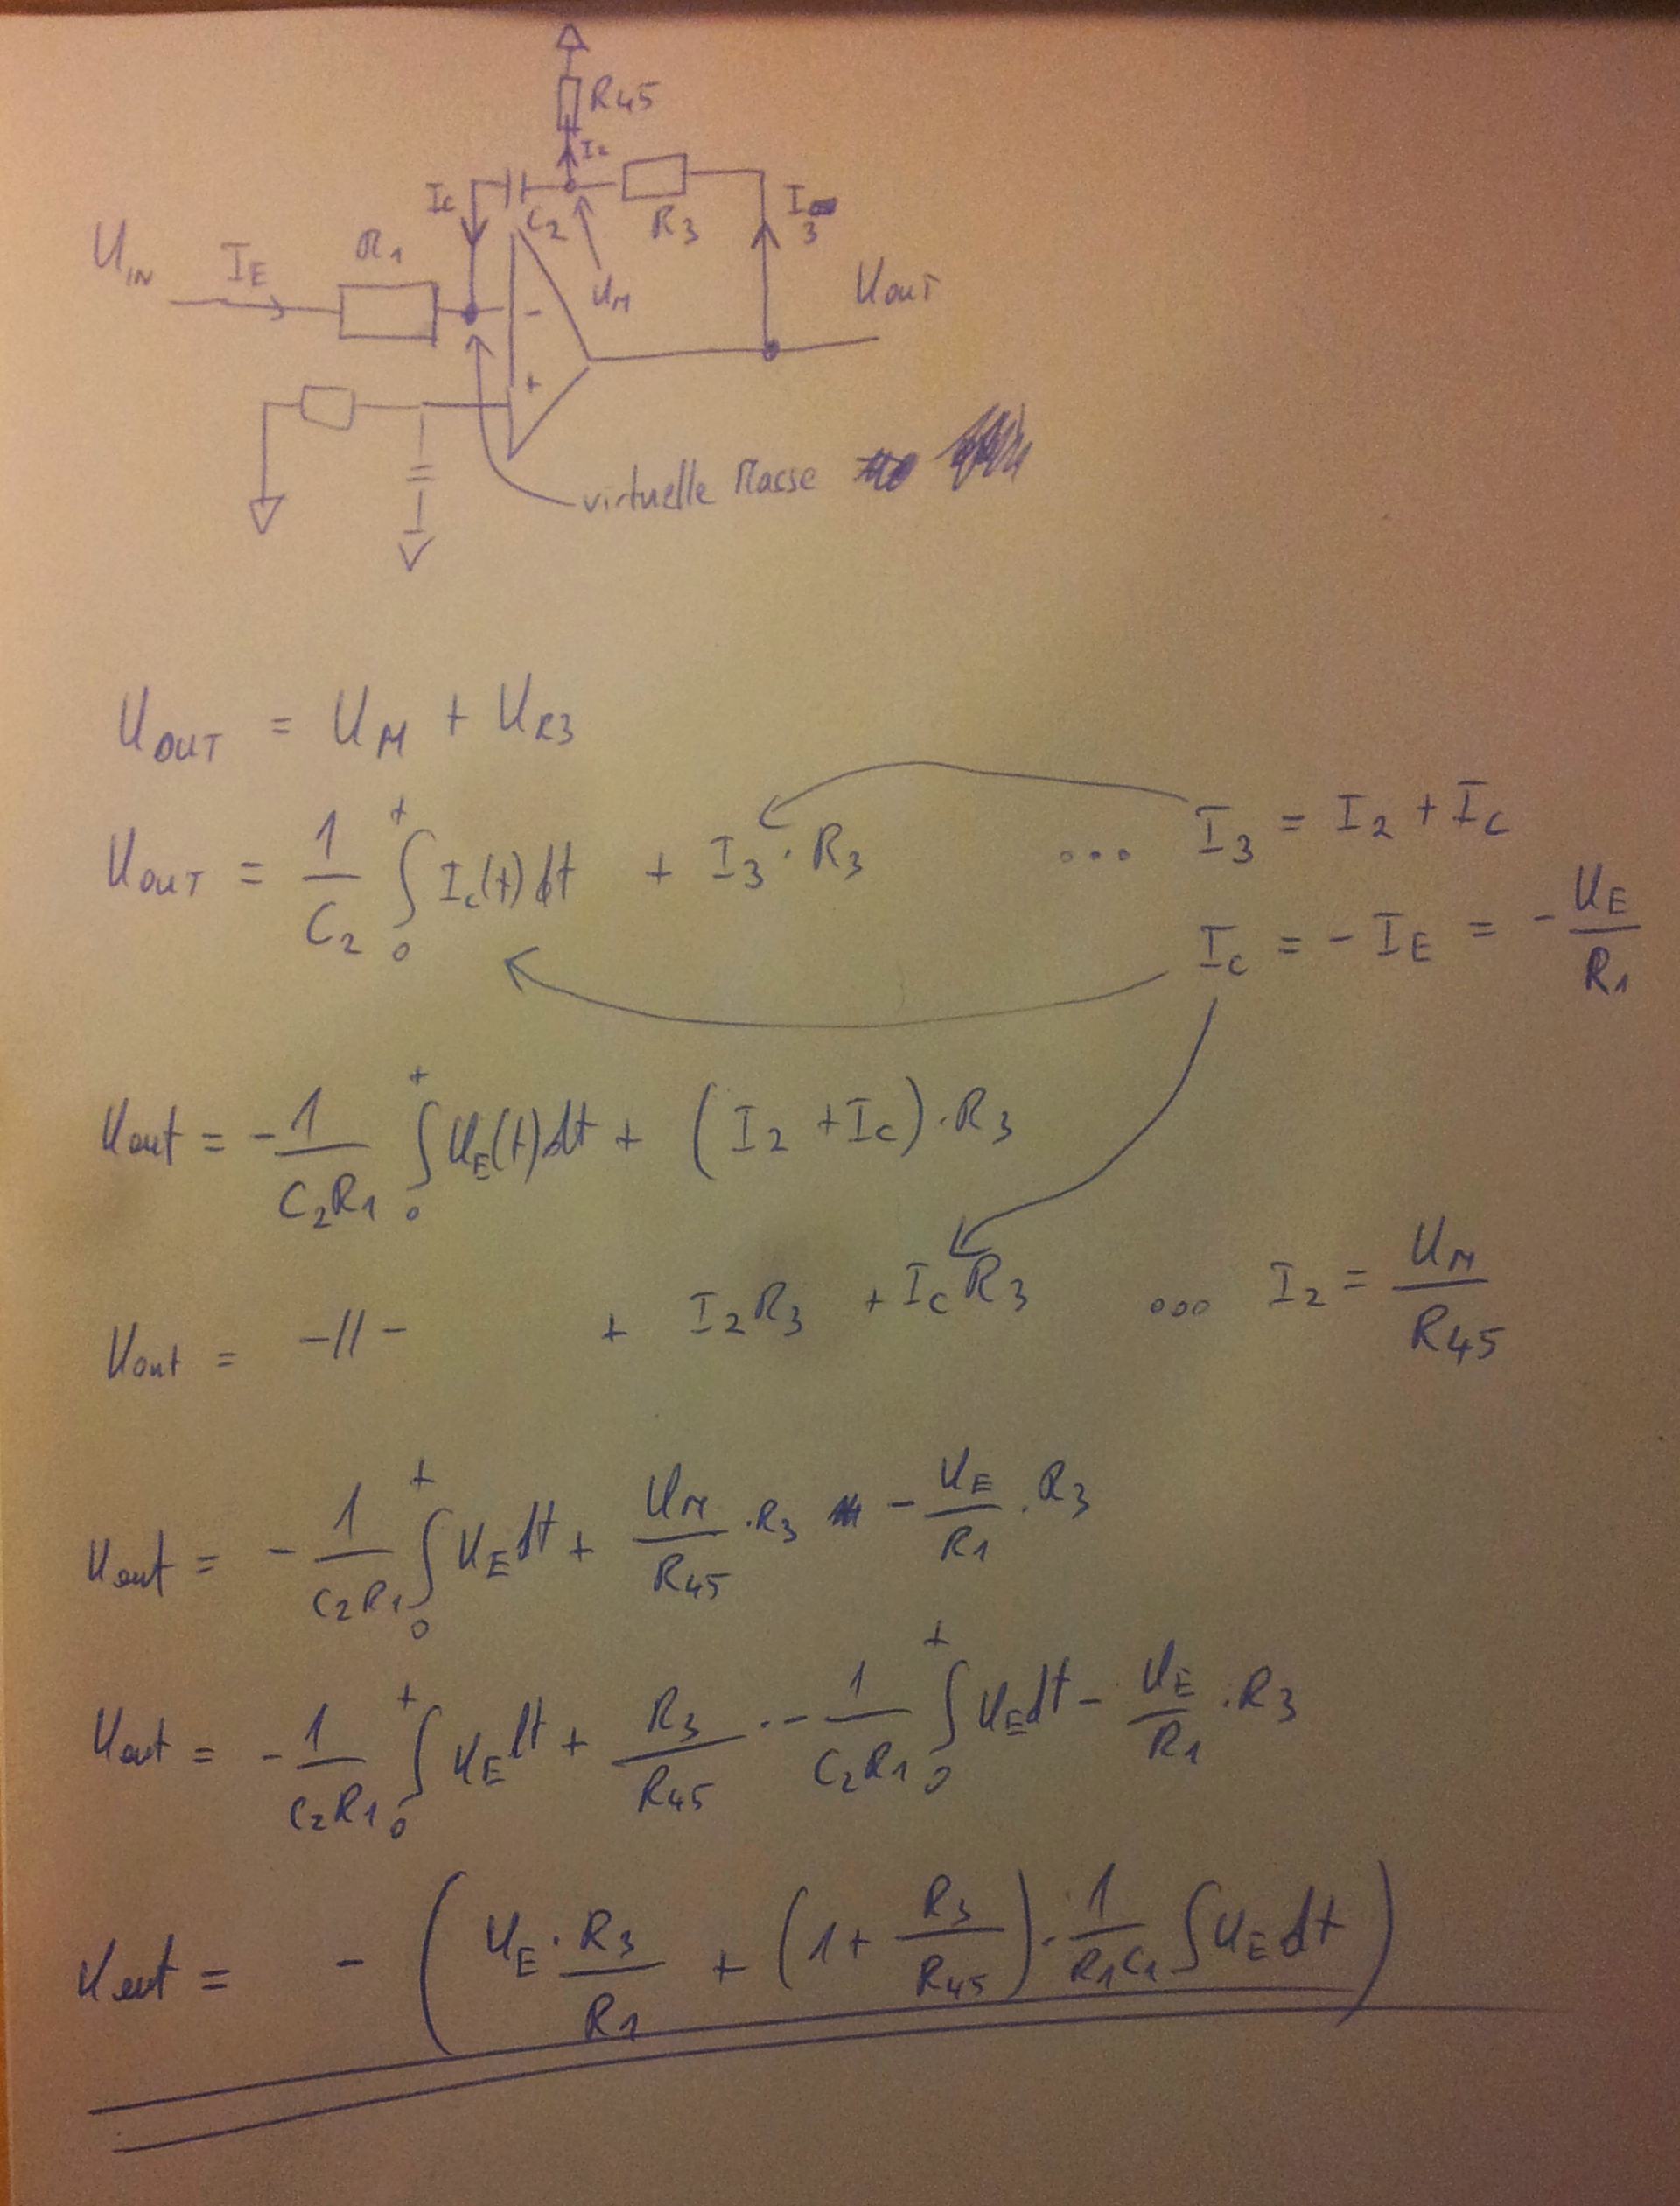 R45
I2
Ic C2 R3 I3
UIN IE R1 UM Uout
-
+
virtuelle Masse
UOUT = UM + UR3
UOUT = 1/C2 ∫0t Ic(t)dt + I3·R3 ... I3 = I2 + Ic
Ic = -IE = -UE/R1
Uout = -1/C2R1 ∫0t UE(t)dt + (I2 + Ic)·R3
Uout = -11- + I2R3 + IcR3 ... I2 = UM/R45
Uout = -1/C2R1 ∫0t UEdt + UM/R45 ·R3 - UE/R1 ·R3
Uout = -1/C2R1 ∫0t UEdt + R3/R45 · -1/C2R1 ∫0t UEdt - UE/R1 ·R3
Uout = -(UE·R3/R1 + (1+R3/R45)·1/R1C1 ∫UEdt)